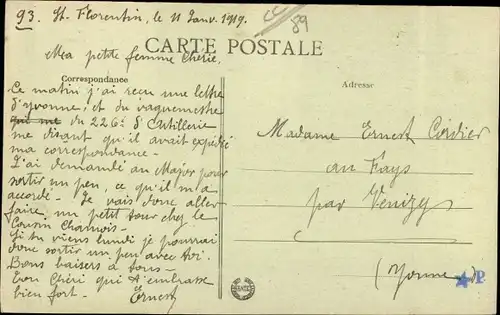 93. St. Florentin, le 11 Janv. 1919.
CARTE POSTALE
Ma petite femme Chérie.
Correspondance
Adresse
Ce matin j'ai reçu une lettre
d'Yvonne, et du vaguemestre
qui me du 226e d'Artillerie
me disant qu'il avait expédié
ma correspondance.
J'ai demandé au Major pour
sortir un peu, ce qu'il m'a
accordé. Je vais donc aller
faire un petit tour chez le
Cousin Chamois.
Si tu viens lundi je pourrai
donc sortir un peu avec toi.
Bons baisers à tous.
Ton Chéri qui t'embrasse
bien fort. Ernest
Madame Ernest Cordier
au Fays
par Venizy
(Yonne)